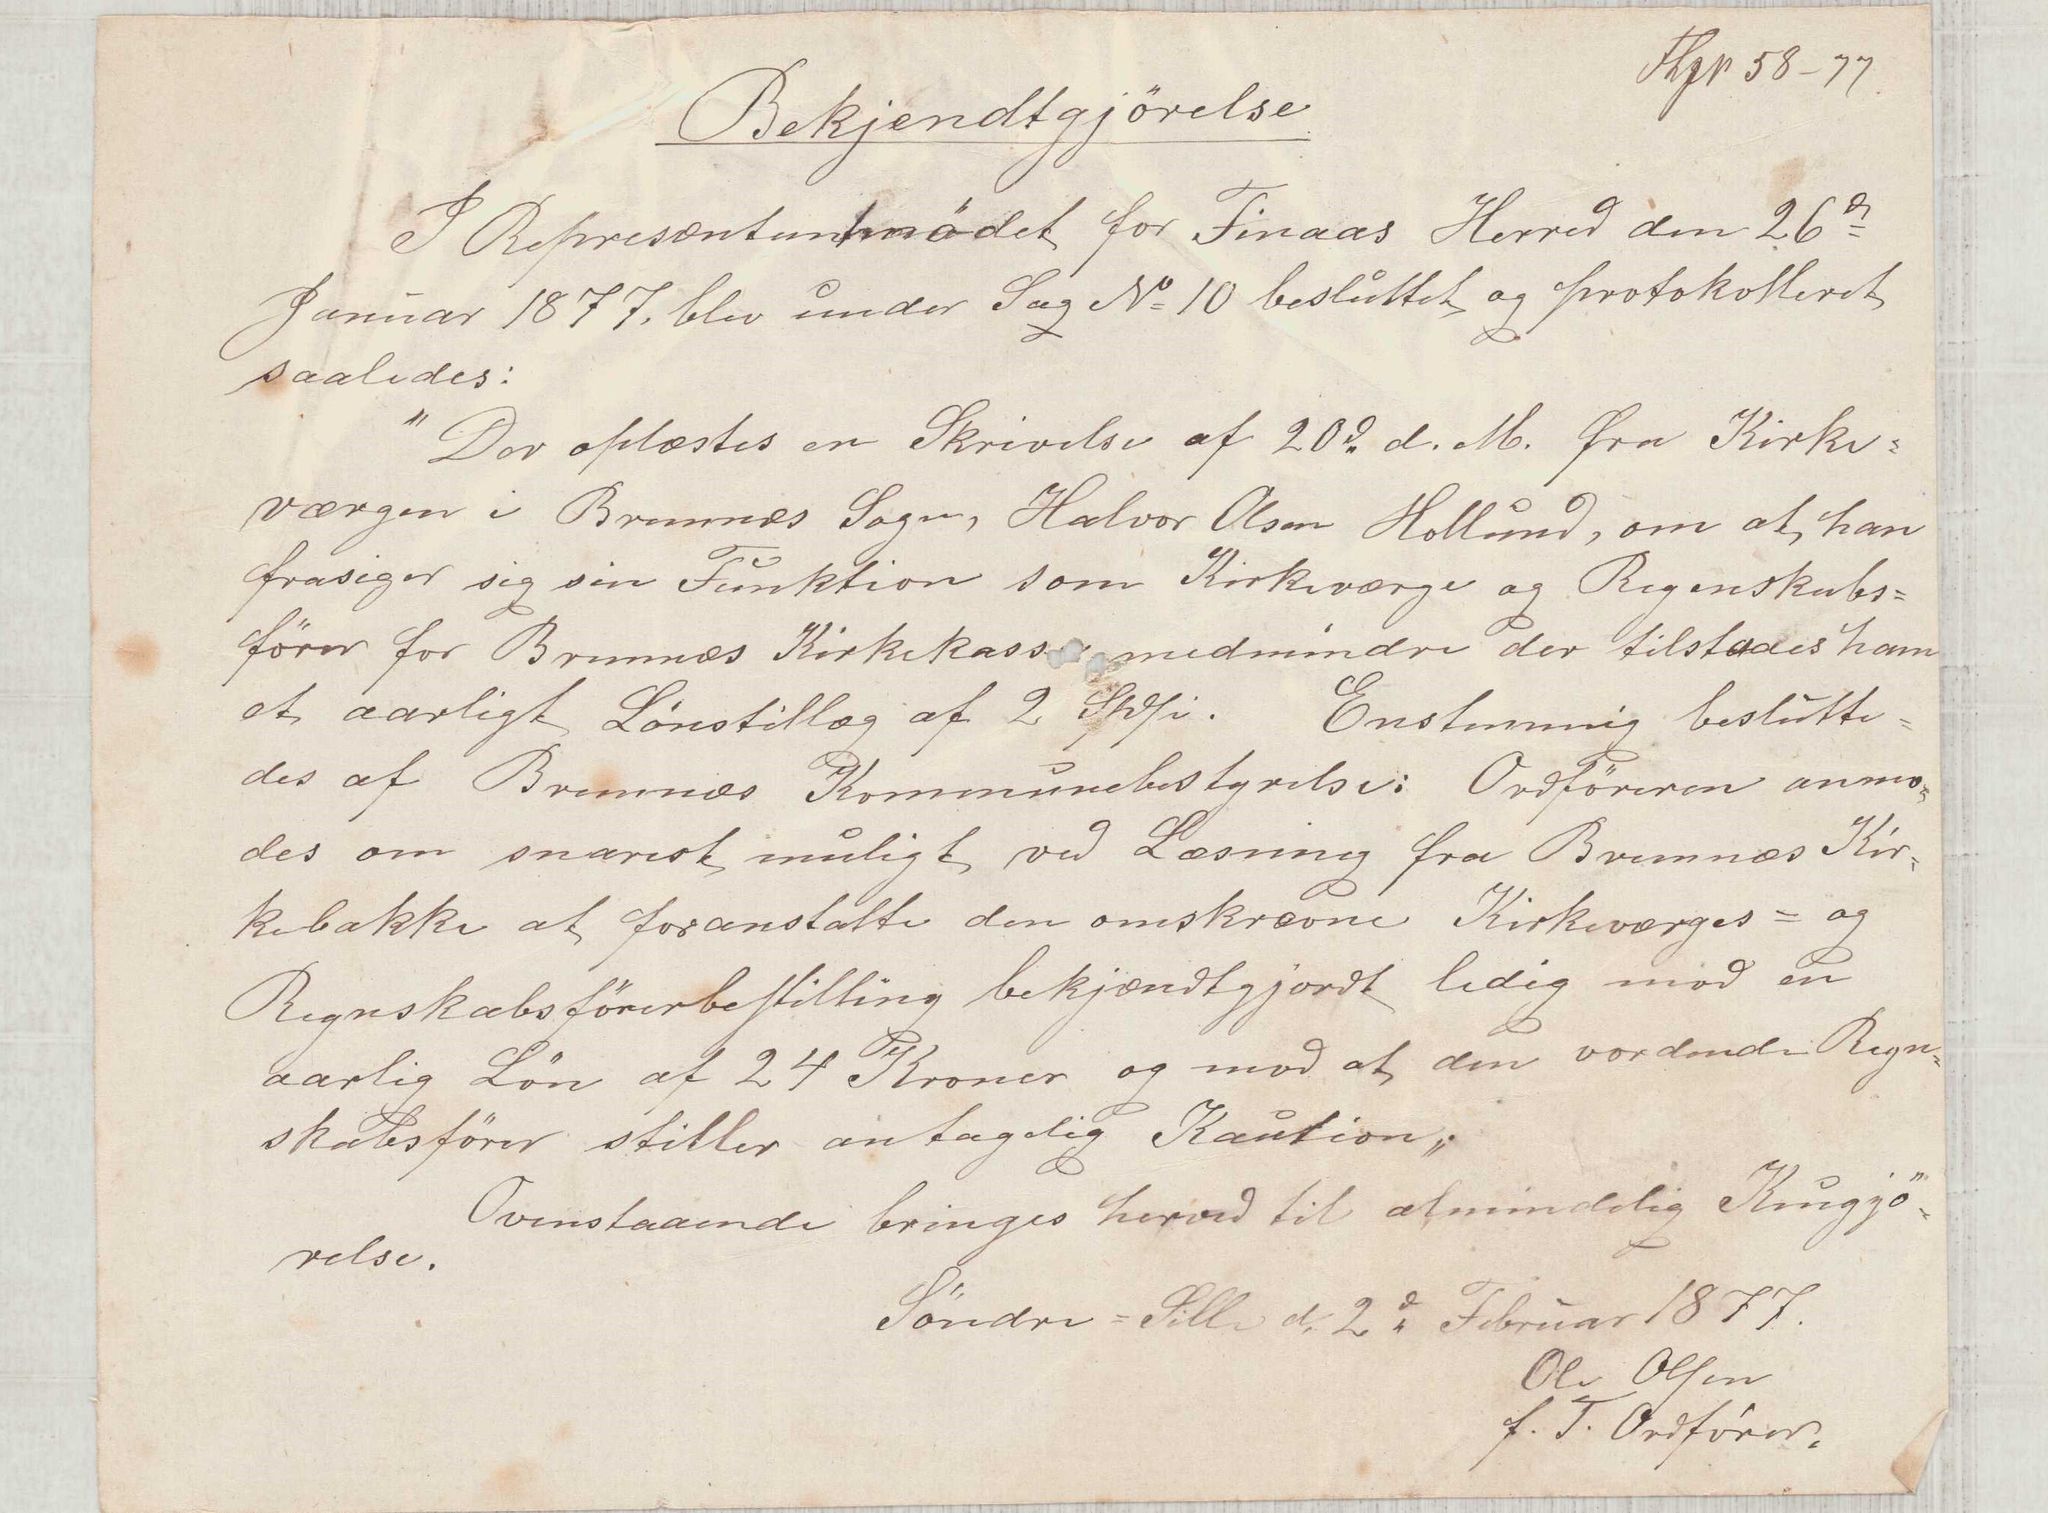 58-77
Bekjendtgjörelse
I Repræsentantmödet for Finaas Herred den 26de
Januar 1877, blev under Sag No 10 besluttet og protokolleret
saaledes:
"Der oplæstes en Skrivelse af 20d. d. M. fra Kirke=
værgen i Bremnæs Sogn, Halvor Olsen Hollund, om at han
frasiger sig sin Funktion som Kirkeværge og Regenskabs=
förer for Bremnæs Kirkekasse medmindre der tilstædes ham
et aarligt Lönstillæg af 2 Spd. Enstemmig beslutte=
des af Bremnæs Kommunebestyrelse: Ordföreren anmo=
des om snarest muligt ved Læsning fra Bremnæs Kir=
kebakke at foranstalte den omskrevne Kirkeværges= og
Regnskabsförerbestilling bekjændtgjordt ledig mod en
aarlig Lön af 24 Kroner og mod at den vordende Regn=
skabsförer stiller antagelig Kaution".
Ovenstaaende bringes herved til almindelig Kungjö=
relse.
Söndre = Sille d. 2d Februar 1877.
Ole Olsen
f. T. Ordförer.